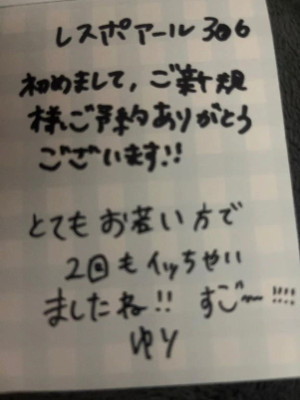 レスポアール306
初めまして,ご新規
様ご予約ありがとう
ございます!!
とてもお若い方で
2回もイッちゃい
ましたね!! すご〜!!!!
ゆり